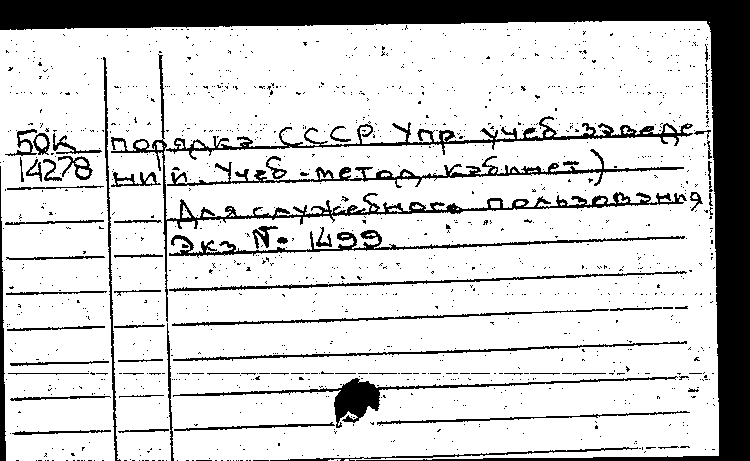 50К порядка СССР Упр. учеб. заведе-
14278 ний. Учеб.-метод. кабинет)
Для служебного пользования
Экз № 1499.